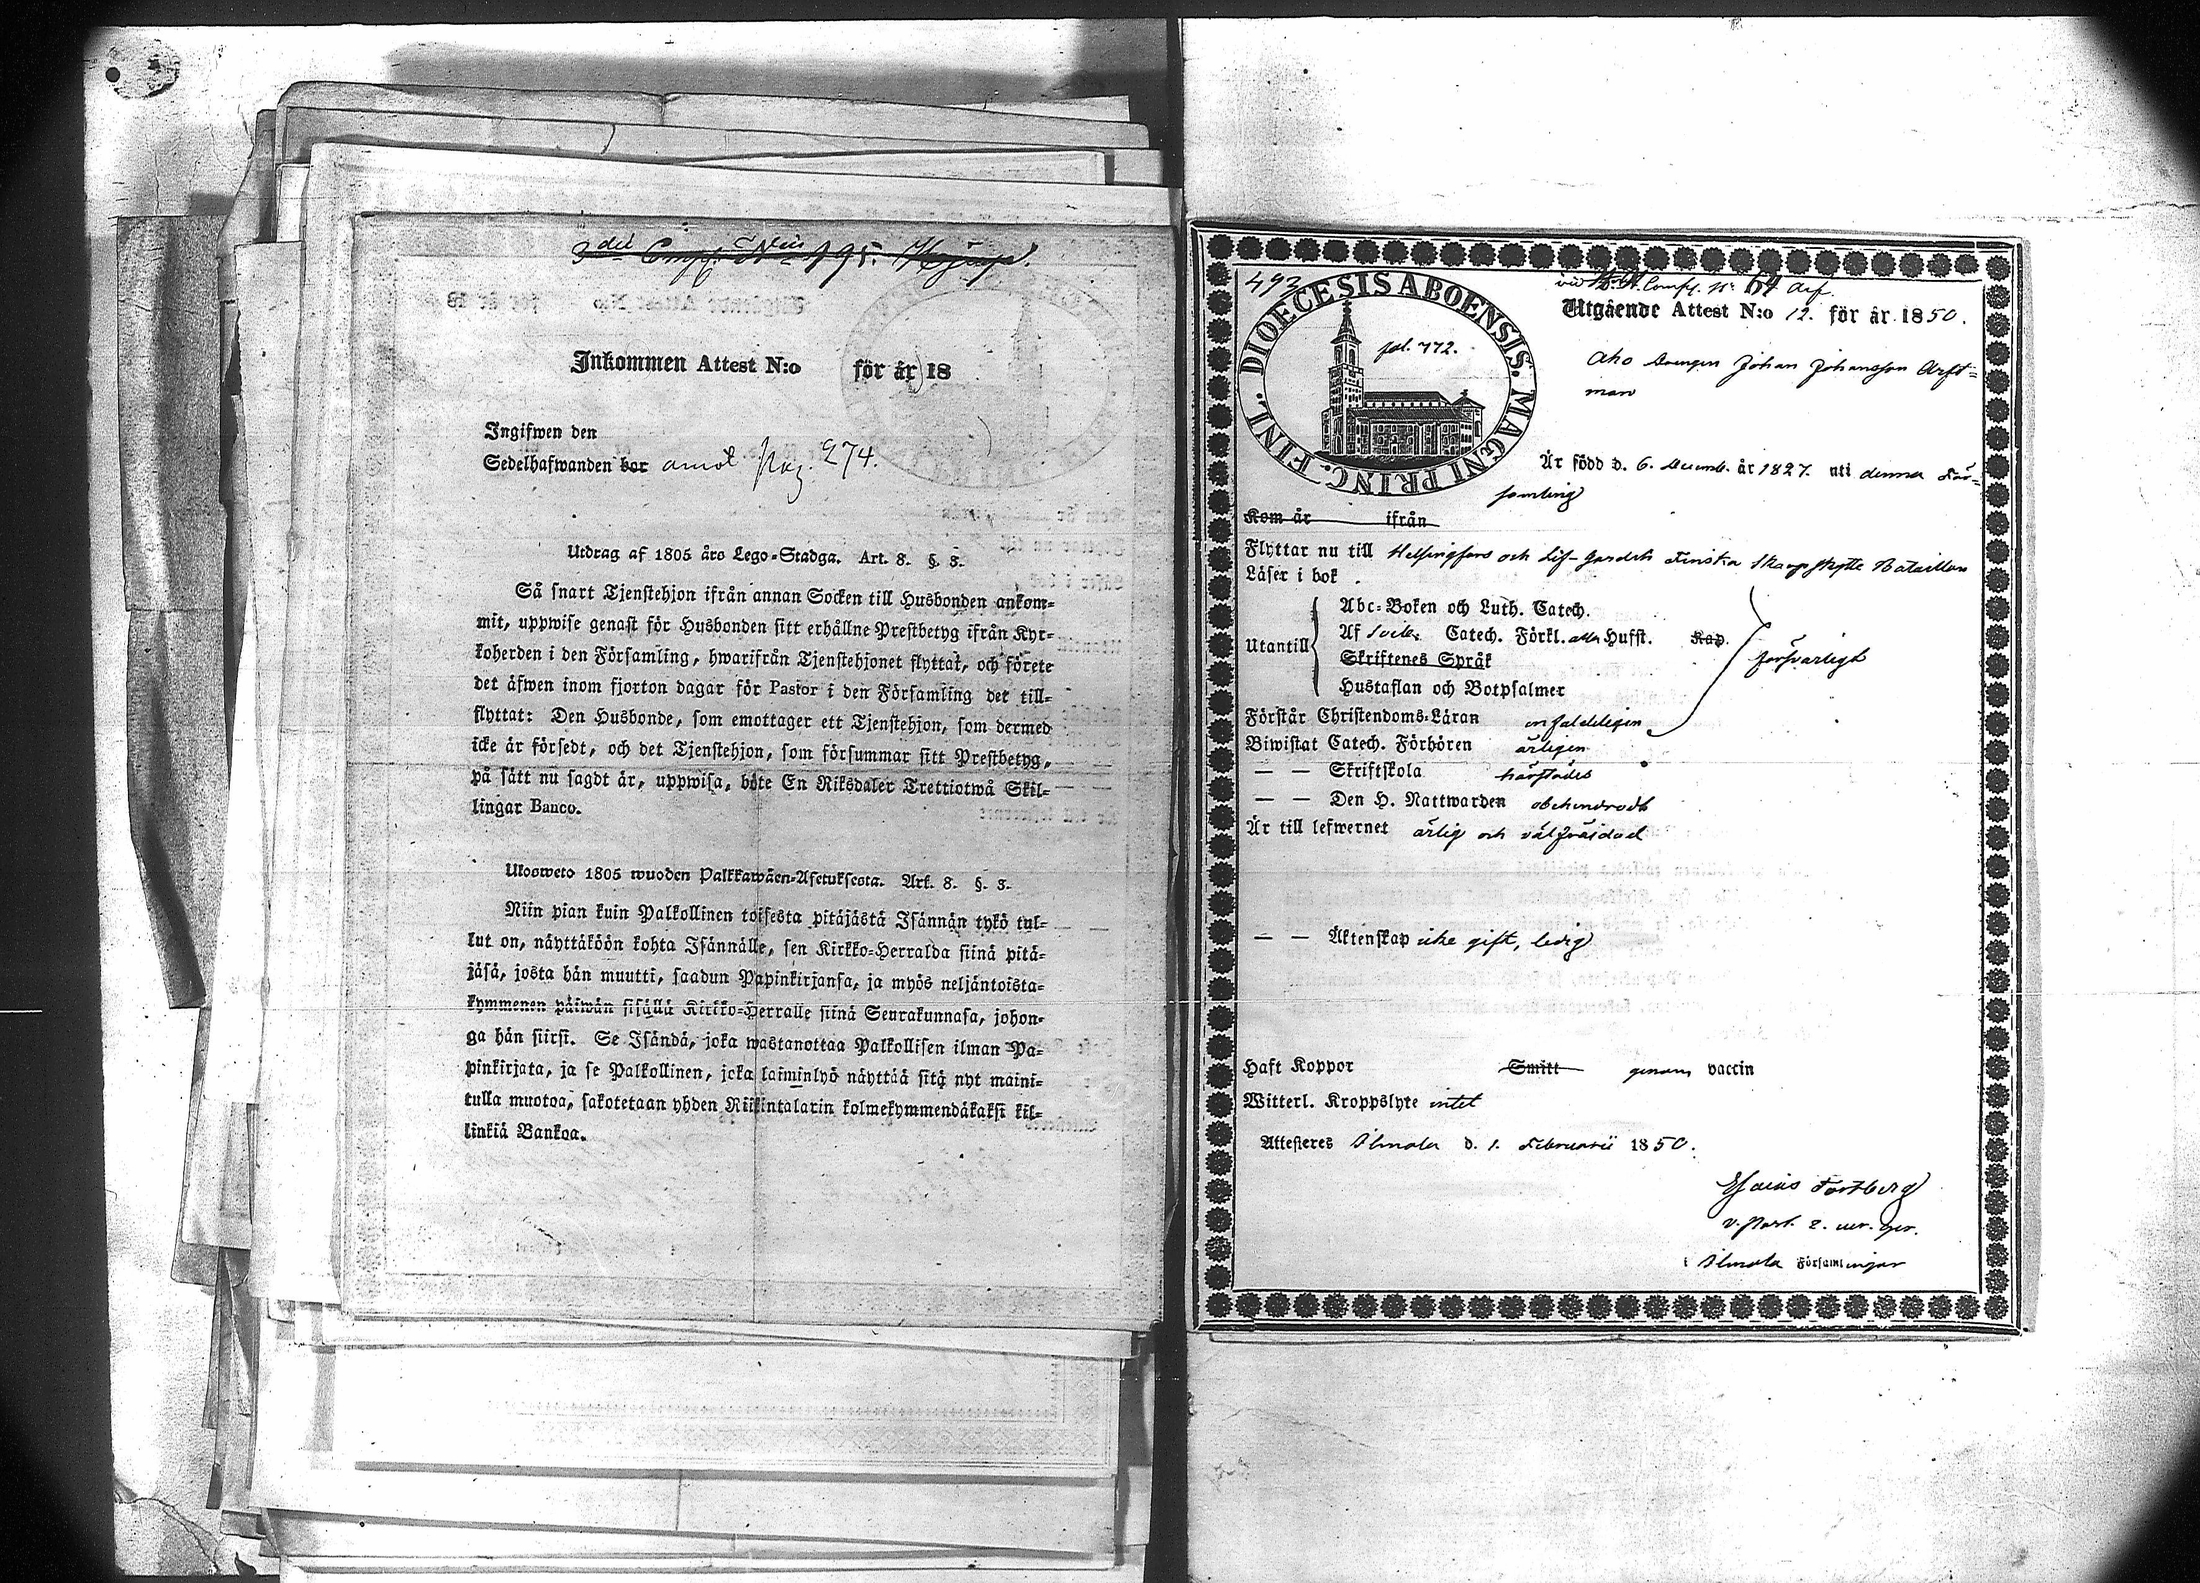 3die Comp. N: 195.
Inkommen Attest N:o för år 18
Ingifwen den
Sedelhafwanden bor annot. pag. 274.
Utdrag af 1805 års Lego-Stadga. Art. 8. §. 3.
Så snart Tjenstehjon ifrån annan Socken till Husbonden ankom-
mit, uppwise genast för Husbonden sitt erhållne Prestbetyg ifrån Kyr-
koherden i den Församling, hwarifrån Tjenstehjonet flyttat, och förete
det äfwen inom fjorton dagar för Pastor i den Församling det till-
flyttat: Den Husbonde, som emottager ett Tjenstehjon, som dermed
icke är försedt, och det Tjenstehjon, som försummar sitt Prestbetyg,
på sätt nu sagdt är, uppwisa, böte En Riksdaler Trettiotwå Skil-
lingar Banco.
Ulosweto 1805 wuoden Palkkawäen-Asetuksesta. Art. 8. §. 3.
Niin pian kuin Palkollinen toisesta pitäjästä Isännän tykö tul-
lut on, näyttäköön kohta Isännälle, sen Kirkko-Herralda siinä pitä-
jäsä, josta hän muutti, saadun Papinkirjansa, ja myös neljäntoista-
kymmenen päiwän sisällä Kirkko-Herralle siinä Seurakunnasa, johon-
ga hän siirsi. Se Isändä, joka wastanottaa Palkollisen ilman Pa-
pinkirjata, ja se Palkollinen, joka laiminlyö näyttää sitä nyt maini-
tulla muotoa, sakotetaan yhden Riikintalarin kolmekymmendäkaksi kil-
linkiä Bankoa.
493
DIOECESIS ABOENSIS. MAGNI PRINC. FINL.
fol. 772.
Comp. N: 64
Utgående Attest N:o 12. för år 1850.
Aho Drengen Johan Johansson Arft=
man
Är född d. 6. Decemb. år 1827. uti denna För=
samling
Kom år ifrån
Flyttar nu till Helsingfors och Lif-Gardets Finska Skarpskytte Bataillon
Läser i bok
Utantill
Abc-Boken och Luth. Catech.
Af Catech. Förkl. Hufst. Kap.
Skriftenes Språk
Hustaflan och Botpsalmer
försvarligt
Förstår Christendoms-Läran enfaldeligen
Biwistat Catech. Förhören årligen
— — Skriftskola härstädes
— — Den H. Nattwarden obehindradt
Är till lefwernet ärlig och välfräjdad
— — Äktenskap icke gift, ledig
Haft Koppor Smitt genom vaccin
Witterl. Kroppslyte intet
Attesteres Ilmola d. 1. Februarii 1850.
Esaias Forsberg
i Ilmola Församlingar